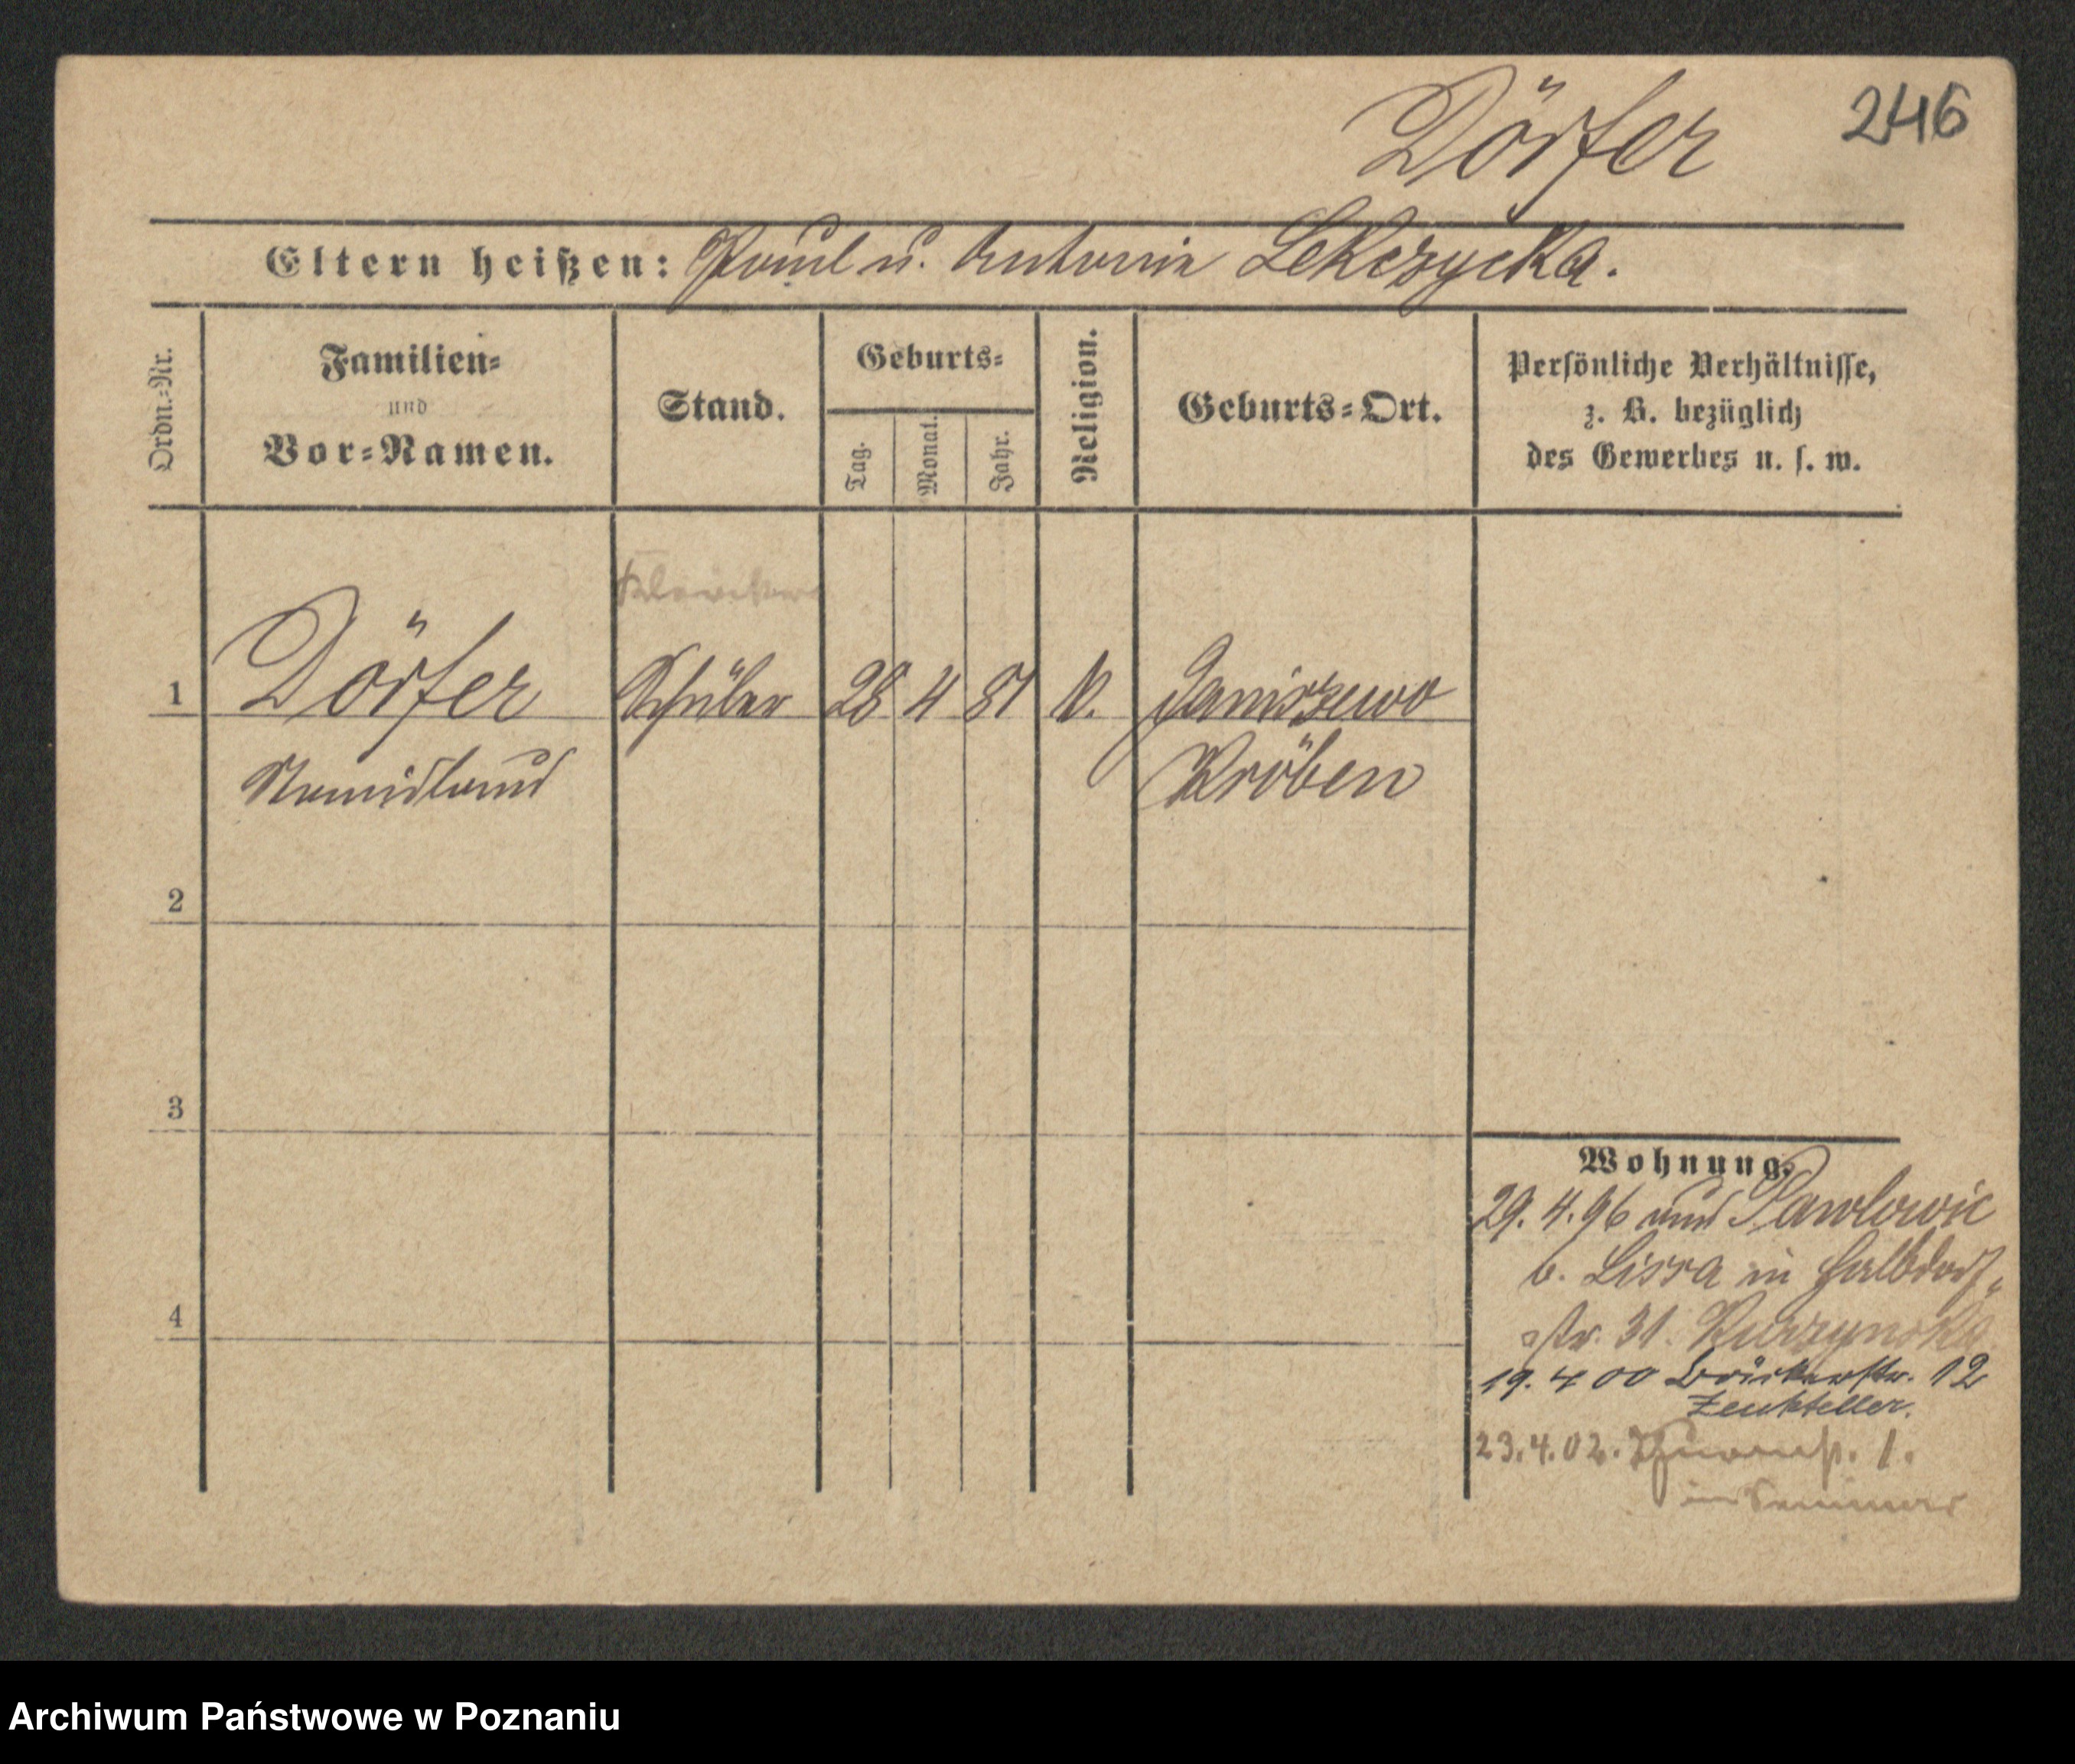 246
Dörfer
Eltern heißen: Paul u. Antonie Lekczycka.
Ordn.-Nr.
Familien-
und
Vor-Namen.
Stand.
Geburts-
Tag.
Monat.
Jahr.
Religion.
Geburts-Ort.
Persönliche Verhältnisse,
z. B. bezüglich
des Gewerbes u. s. w.
1 Dörfer Schüler 28 4 81 K. Janiszewo
Kröben
2
3
4
Wohnung.
29. 4. 96 aus Pawlowic
b. Lissa in Halbdorf-
str. 31.
19. 4 00 12
Zenkteller.
23. 4. 02. 1.
im Seminar
Archiwum Państwowe w Poznaniu